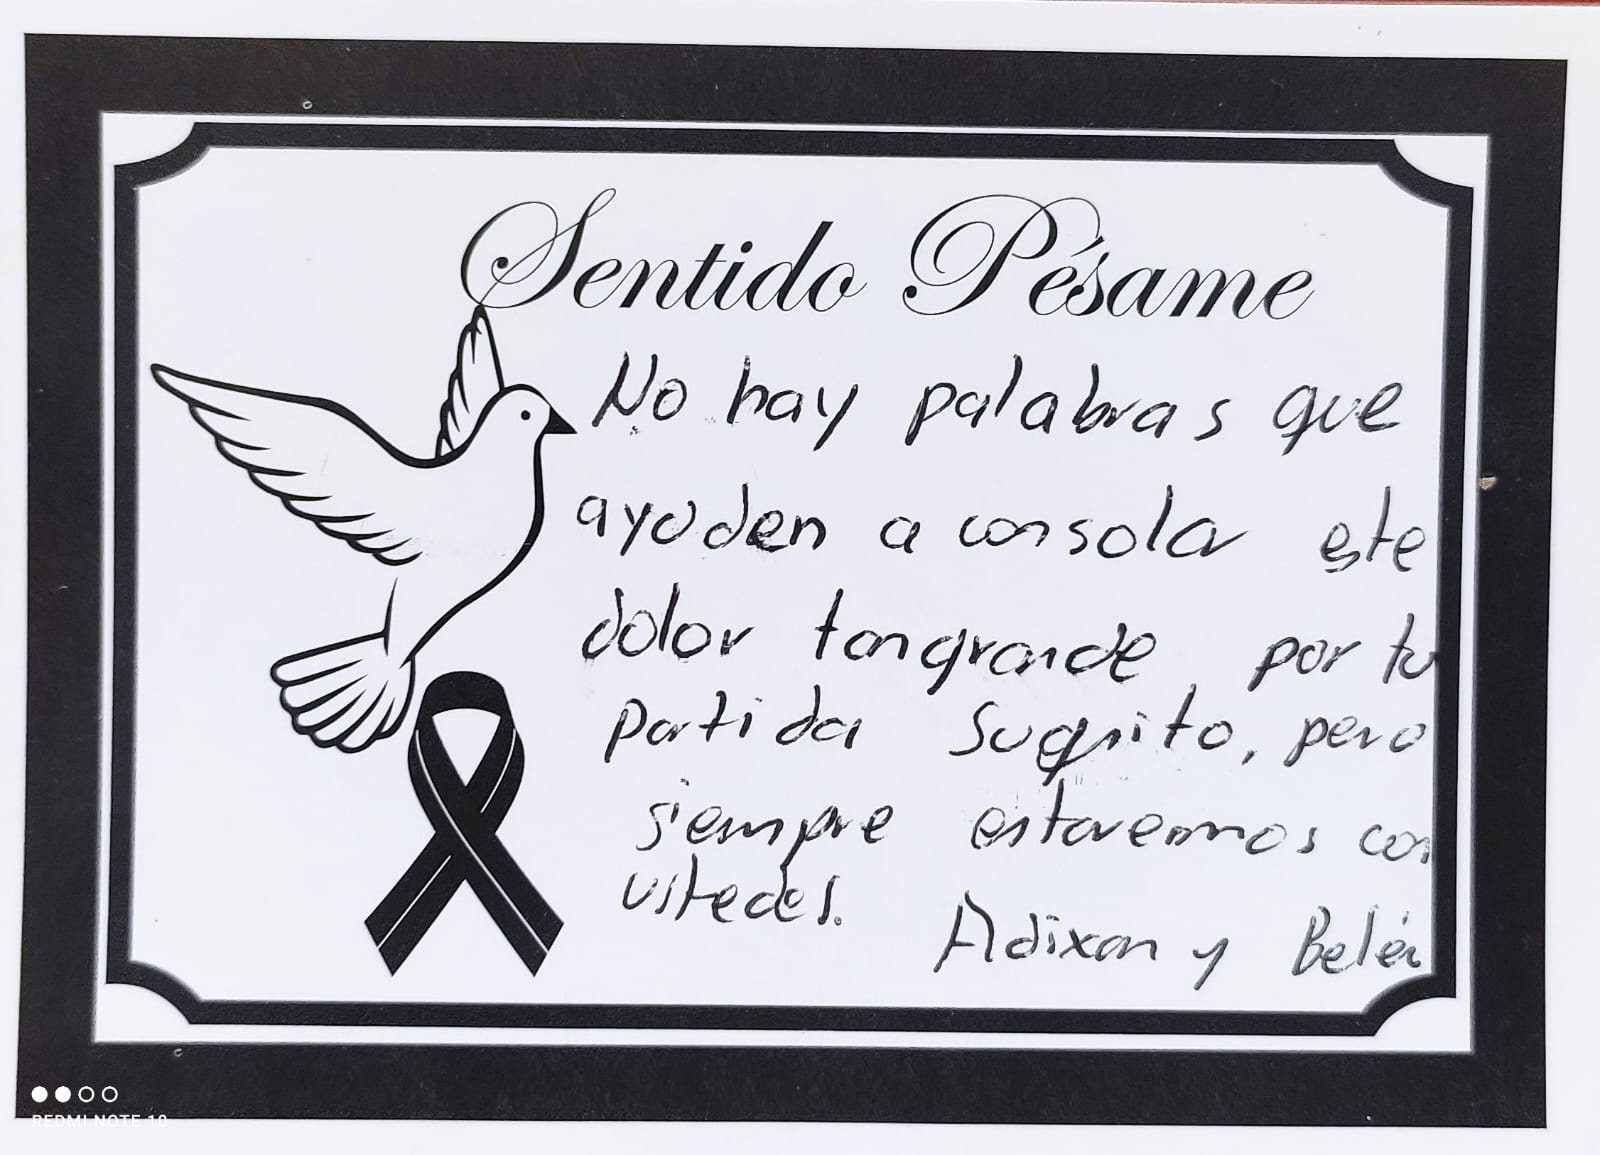 Sentido Pésame
No hay palabras que
ayuden a consolar este
dolor tan grande por tu
partida Sugrito, pero
siempre estaremos con
ustedes.
Adixan y Belén
REDMI NOTE 10